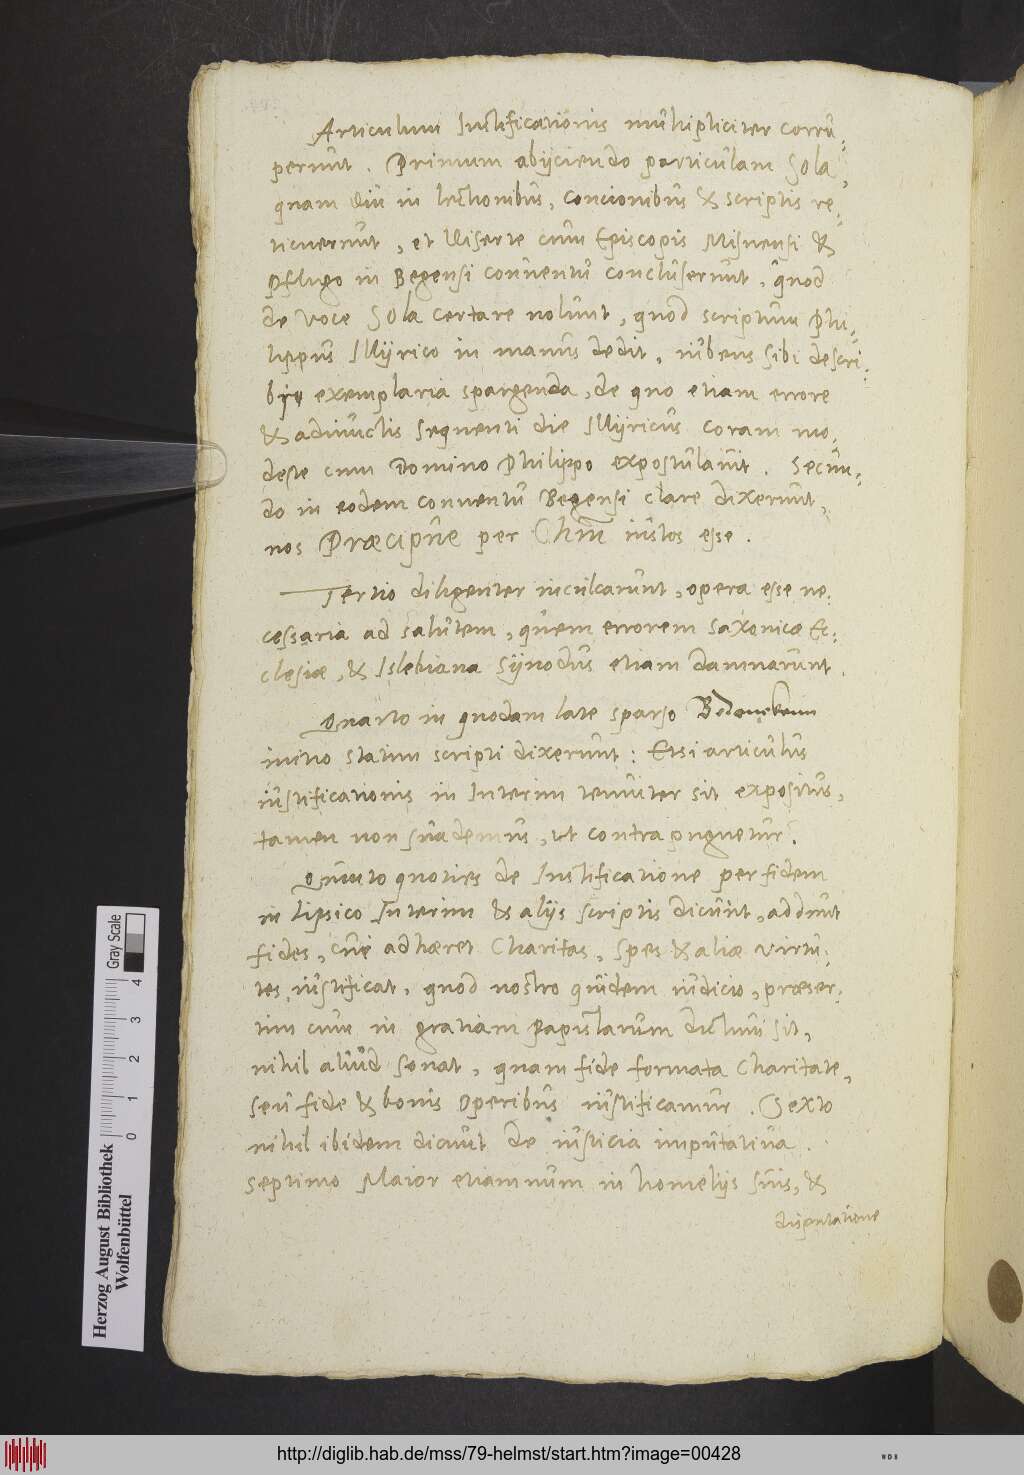 Articulum Iustificationis multipliciter corru-
perunt. Primum abijciendo particulam Sola,
quam diu in lectionibus, concionibus & scriptis re-
ticuerunt, et diserte cum Episcopis Misnensi &
Pflugo in Begensi conuentu concluserunt, quod
de voce Sola certare nolunt, quod scriptum Phi-
lippus Illyrico in manus dedit, iubens sibi descri-
bi exemplaria spargenda, de quo etiam errore
& adiunctis sequenti die Illyricus coram mo-
deste cum Domino Philippo expostulauit. Secun-
do in eodem conuentu Begensi clare dixerunt,
nos Præcipue per Chm iustos esse.
Tertio diligenter inculcarunt, opera esse ne-
cessaria ad salutem, quem errorem Saxonicæ Ec-
clesiæ, & Islebiana Synodus etiam damnarunt.
Quarto in quodam late sparso Bedencken
initio statim scripti dixerunt: Etsi articulus
iustificationis in Interim tenuiter sit expositus,
tamen non suademus, ut contra pugnetur.
Quinto quoties de Iustificatione per fidem
in Lipsico Interim & alijs scriptis dicunt, addunt
fides, cui adhæret Charitas, spes & aliæ virtu-
tes iustificat, quod nostro quidem iudicio, præser-
tim cum in gratiam Papistarum dictum sit,
nihil aliud sonat, quam fide formata Charitate,
seu fide & bonis operibus iustificamur. Sexto
nihil ibidem dicunt de iusticia imputatiua.
Septimo Maior etiamnum in homelijs suis, &
disputatione
Gray Scale
0 1 2 3 4
Herzog August Bibliothek
Wolfenbüttel
http://diglib.hab.de/mss/79-helmst/start.htm?image=00428